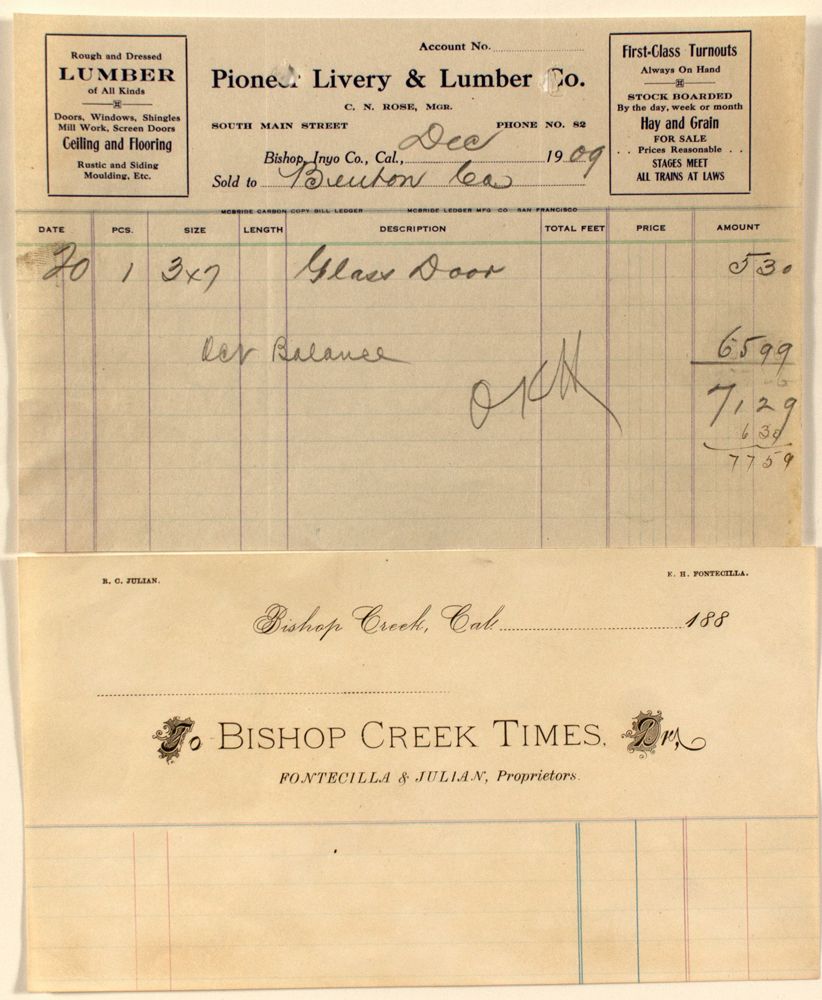 Rough and Dressed
LUMBER
of All Kinds
Doors, Windows, Shingles
Mill Work, Screen Doors
Ceiling and Flooring
Rustic and Siding
Moulding, Etc.
Account No.
Pioneer Livery & Lumber Co.
C. N. ROSE, MGR.
SOUTH MAIN STREET PHONE NO. 82
Bishop, Inyo Co., Cal., Dec 1909
Sold to Benton Ca
First-Class Turnouts
Always On Hand
STOCK BOARDED
By the day, week or month
Hay and Grain
FOR SALE
. . Prices Reasonable . .
STAGES MEET
ALL TRAINS AT LAWS
MCBRIDE CARBON COPY BILL LEDGER MCBRIDE LEDGER MFG CO SAN FRANCISCO
DATE PCS. SIZE LENGTH DESCRIPTION TOTAL FEET PRICE AMOUNT
20 1 3x7 Glass Door 5 30
Balance 65 99
OK H
71 29
6 30
77 59
R. C. JULIAN. E. H. FONTECILLA.
Bishop Creek, Cal. 188
To BISHOP CREEK TIMES, Dr,
FONTECILLA & JULIAN, Proprietors.